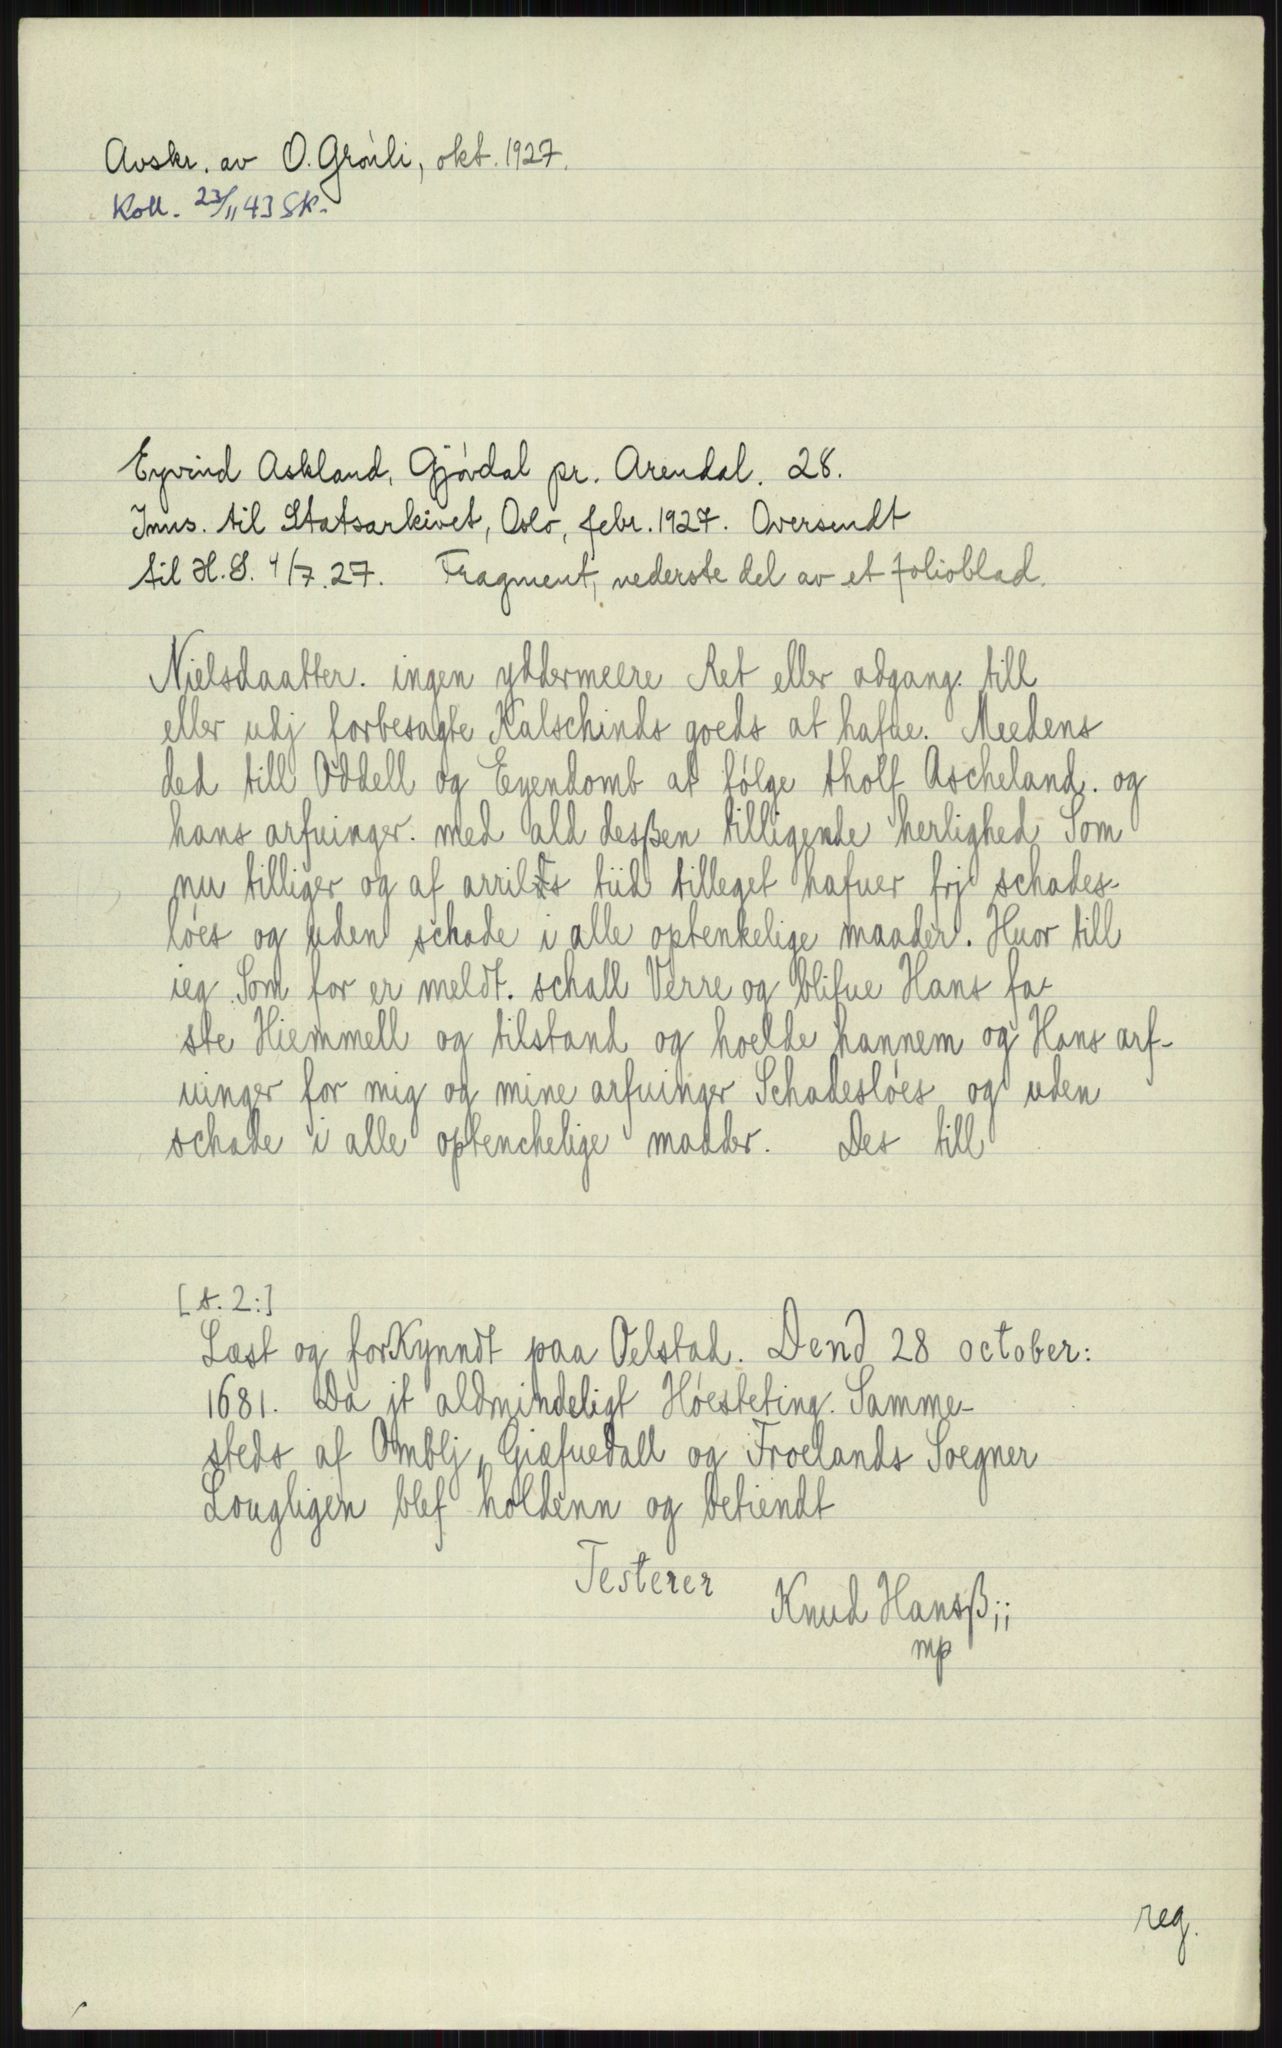 Avskr. av O. Grönli, okt. 1927.
Koll. 23/11 43 SK.
Eyvind Askland, Gjövdal pr. Arendal. 28.
Inns. til Statsarkivet, Oslo, febr. 1927. Oversendt
til H.S. 4/7.27. Fragment, nederste del av et folioblad.
Nielsdaatter. ingen yddermeere Ret eller adgang. till
eller udj forbesagte Kalschinds goeds at hafue. Meedens
ded till Oddell og Eyendomb at fölge tholf Ascheland. og
hans arfuinger. med ald desßen tilligende herlighed Som
nu tilliger og af arrilds tiid tilleget hafuer frj schades-
löes og uden schade i alle optenkelige maader. Huor till
ieg Som for er meldt. schall Verre og blifue Hans fa-
ste Hiemmell og tilstand og hoelde hannem og Hans arf-
uinger for mig og mine arfuinger Schadeslöes og uden
schade i alle optenchelige maader. Des till
[s. 2:]
Læst og forKynndt paa Oelstad. Dend 28 october:
1681. Da jt aldmindeligt Höesteting. Samme-
steds af Omblj, Giæfuedall og Froelands Soegner
Lougligen blef holdenn og betiendt
Testerer
Knud Hansß;;
mp
reg.